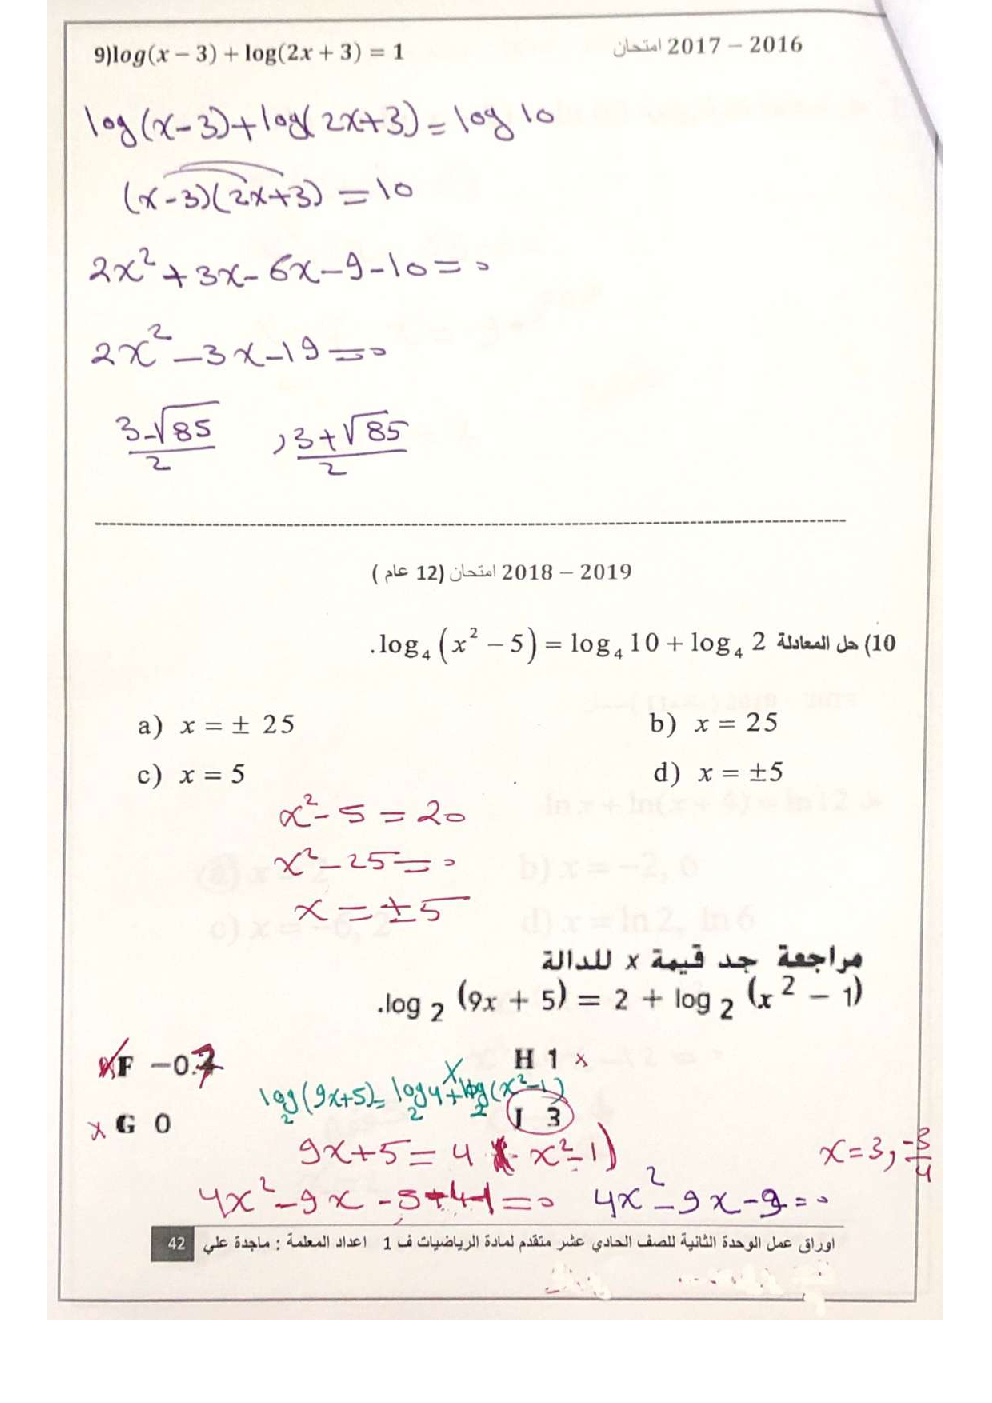 9)log(x − 3) + log(2x + 3) = 1
2016 – 2017 امتحان
log(x-3)+log(2x+3)=log 10
(x-3)(2x+3)=10
2x²+3x-6x-9-10=0
2x²-3x-19=0
(3-√85)/2 , (3+√85)/2
2018 – 2019 امتحان (12 عام )
10) حل المعادلة log₄(x² − 5) = log₄ 10 + log₄ 2.
a) x = ± 25
b) x = 25
c) x = 5
d) x = ±5
x²-5=20
x²-25=0
x=±5
مراجعة جد قيمة x للدالة
.log₂ (9x + 5) = 2 + log₂ (x² − 1)
F −0.7
H 1 x
log₂(9x+5)=log₂4+log₂(x²-1)
x G 0
J 3
9x+5=4(x²-1)
x=3,-3/4
4x²-9x-5+4-1=0
4x²-9x-9=0
اوراق عمل الوحدة الثانية للصف الحادي عشر متقدم لمادة الرياضيات ف 1 اعداد المعلمة : ماجدة علي 42